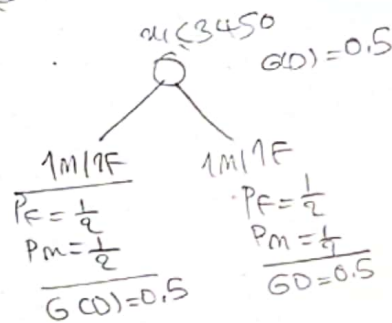 x1<3450
G(D)=0.5
1M/1F
PF=1/2
PM=1/2
G(D)=0.5
1M/1F
PF=1/2
PM=1/
GD=0.5